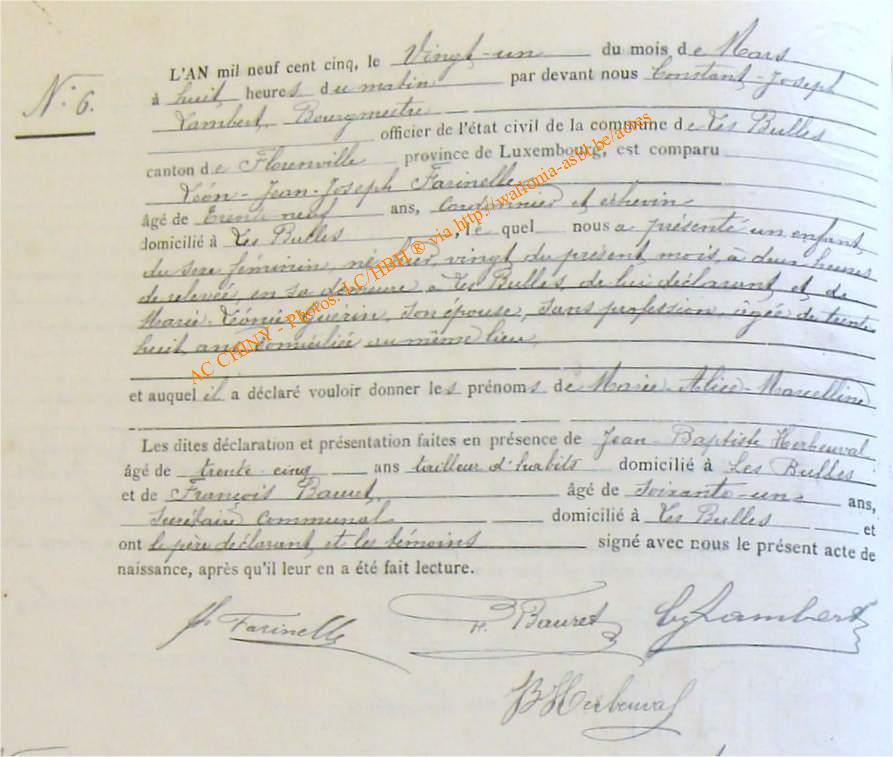 L'AN mil neuf cent cinq, le Vingt-un du mois de Mars
N° 6. à huit heures du matin par devant nous Constant-Joseph
Lambert, Bourgmestre
officier de l'état civil de la commune de Les Bulles
canton de Florenville province de Luxembourg, est comparu
Léon-Jean-Joseph Farinelle
âgé de trente neuf ans, cordonnier et échevin
domicilié à Les Bulles, le quel nous a présenté un enfant
du sexe féminin, né hier vingt du présent mois, à deux heures
de relevée, en sa demeure à Les Bulles, de lui déclarant et de
Marie-Léonie Guérin, son épouse, sans profession, âgée de trente
huit ans domiciliée au même lieu,
et auquel il a déclaré vouloir donner les prénoms de Marie-Alice-Marcelline
Les dites déclaration et présentation faites en présence de Jean-Baptiste Herbeuval
âgé de trente cinq ans tailleur d'habits domicilié à Les Bulles
et de François Bauret, âgé de soixante-un ans,
secrétaire communal domicilié à Les Bulles et
ont le père déclarant et les témoins signé avec nous le présent acte de
naissance, après qu'il leur en a été fait lecture.
Farinelle F. Bauret Lambert
JB Herbeuval
AC CHINY - Photos: LC/HBH ® via http://wallonia-asbl.be/actes